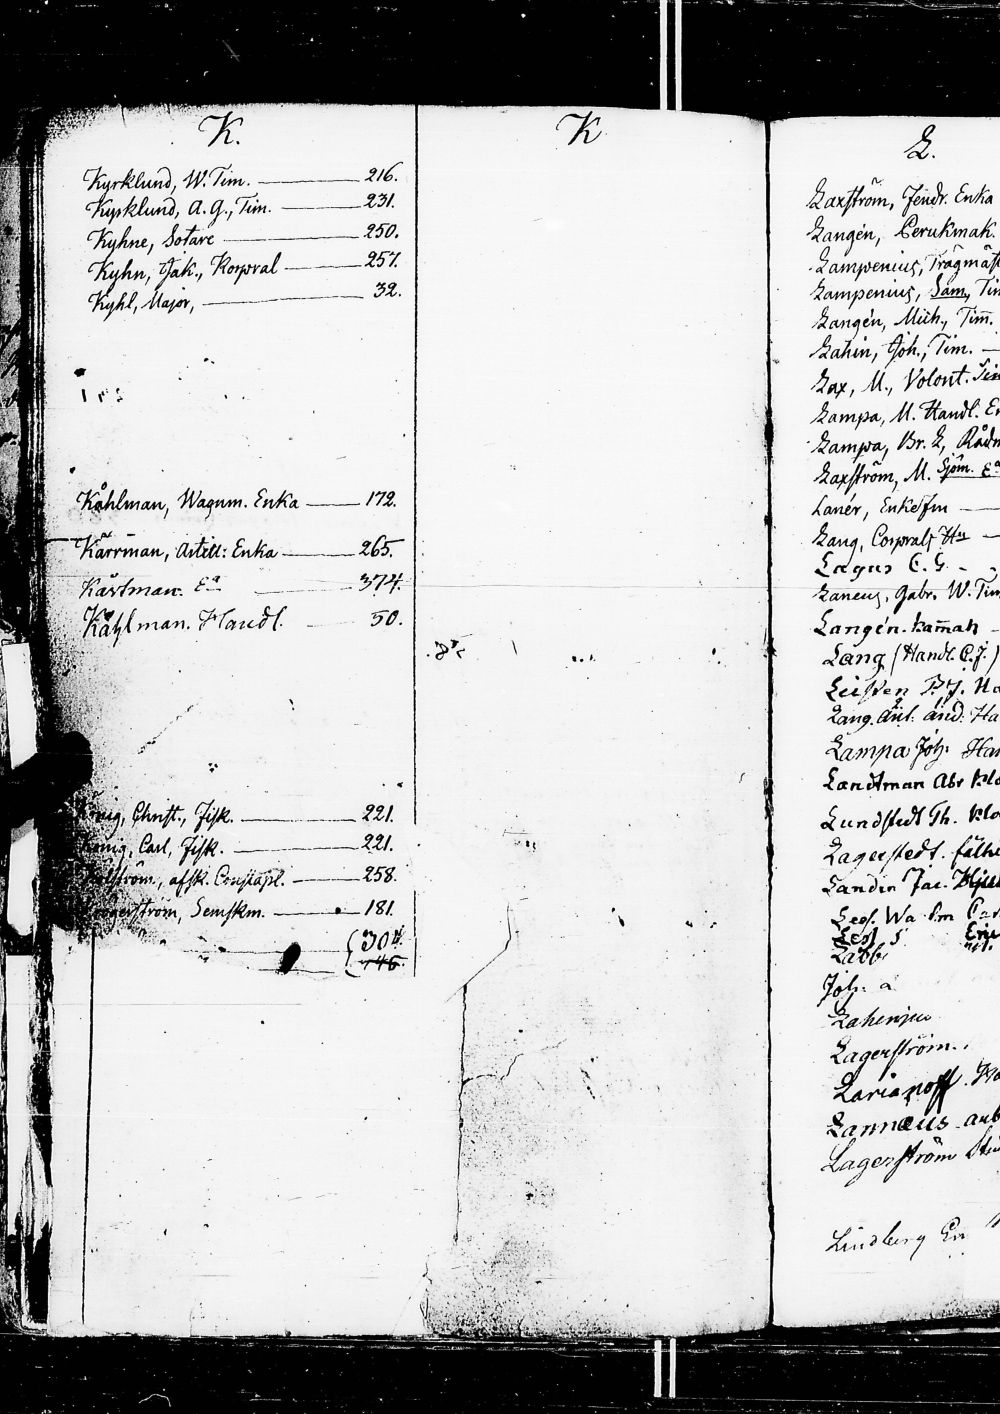 K.
Kyrklund, W. Tim. 216.
Kyrklund, A. G., Tim. 231.
Kyhne, Sotare 250.
Kyhn, Jak., Korpral 257.
Kyhl, Major, 32.
Kåhlman, Wagnm. Enka 172.
Kärrman, Artill: Enka 265.
Kårtman. Eª 374.
Kåhlman. Handl. 50.
König, Christ., Fisk. 221.
König, Carl, Fisk. 221.
afsk. Constapl. 258.
Semskm. 181.
304.
146.
K
L.
Laxström, Fendr. Enka
Langén, Perukmak.
Lampenius,
Lampenius, Sam, Tim
Langén, Mich., Tim.
Lahin, Joh., Tim.
Lax, M., Volont.
Lampa, M. Handl.
Lampa, Br. L, Rådm
Laxström, M. Sjöm. Eª
Lanér, Enkefru
Lang, Corprals
Lagus C. G.
Laneus, Gabr. W. Tim
Langén. Hannah
Lang (Handl. C. J.)
Leisten P. J.
Lang.
Lampa Joh. Han
Landtman Abr Klo
Lundstedt Th. Klo
Lagerstedt.
Landin Jac.
Labb
Joh.
Lahenius
Lagerström.
Larionoff.
Lannæus arb
Lagerström
Lindberg